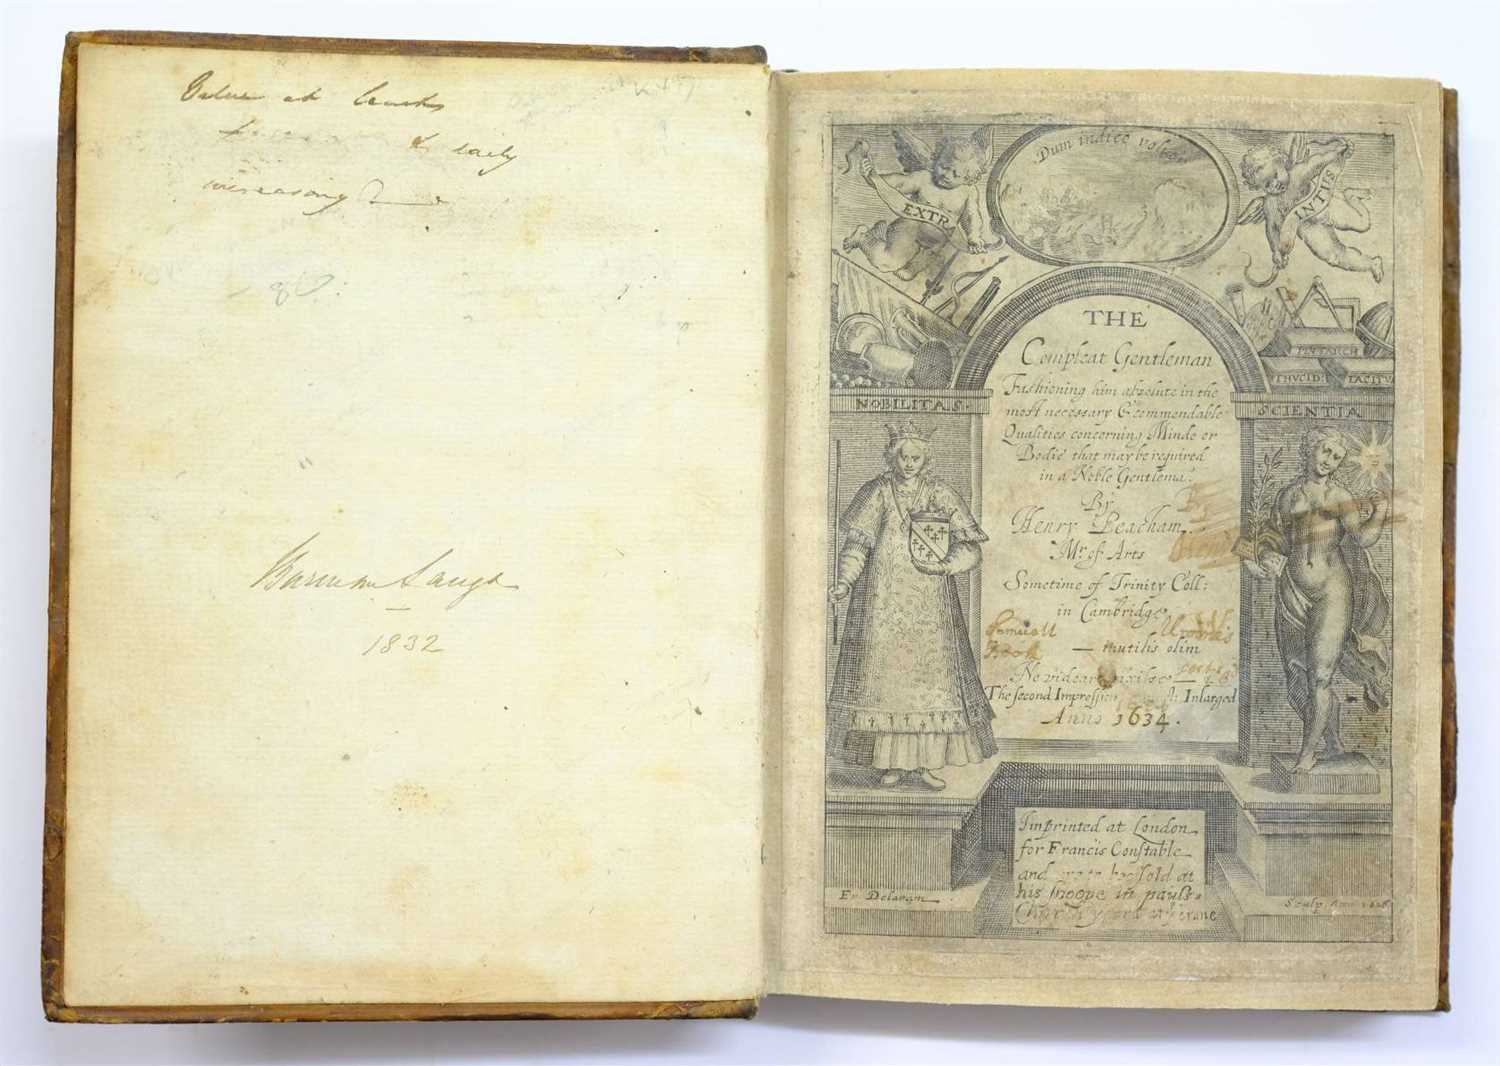 Value at
& daily
increasing
1832
Dum indice
EXTRA
INTUS
THE
Compleat Gentleman
Fashioning him absolute in the
most necessary & commendable
Qualities concerning Minde or
Bodie that may be required
in a Noble Gentlema:
By
Henry Peacham
Mr. of Arts
Sometime of Trinity Coll:
in Cambridge
— inutilis olim
Ne videar vixisse
The second Impression Inlarged
Anno 1634.
NOBILITAS.
SCIENTIA
PLUTARCH
THUCID: TACITU
Samuell
Book
Imprinted at London
for Francis Constable
and are to be sold at
his shoope in pauls
Church yard at Crane
Fr Delaram
Sculp.